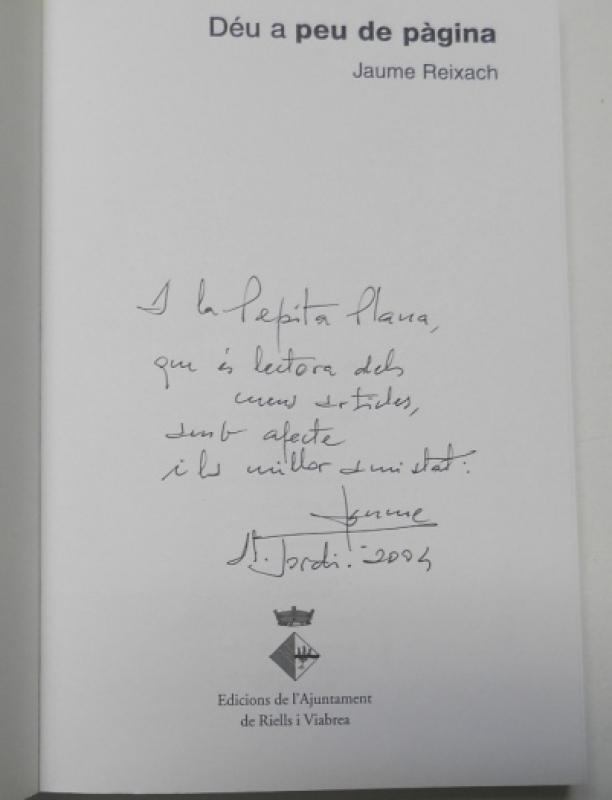 Déu a peu de pàgina
Jaume Reixach
A la Pepita Plana,
que és lectora dels
meus articles,
amb afecte
i la millor amistat:
Jaume
St. Jordi-2004
Edicions de l'Ajuntament
de Riells i Viabrea